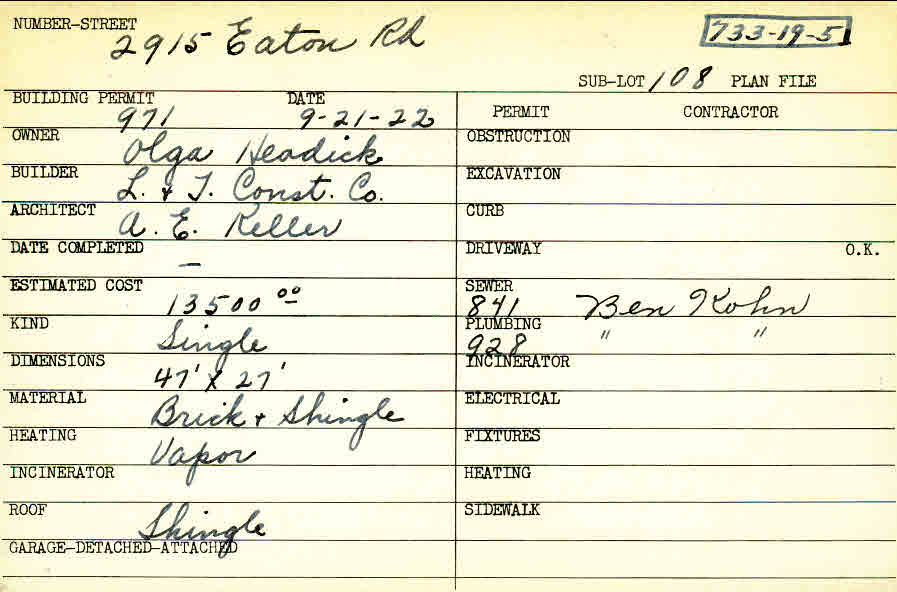 NUMBER-STREET
2915 Eaton Rd
733-19-5
SUB-LOT 108 PLAN FILE
BUILDING PERMIT DATE
971 9-21-22
OWNER
Olga Headick
BUILDER
L. & T. Const. Co.
ARCHITECT
A. E. Keller
DATE COMPLETED
—
ESTIMATED COST
13500 00
KIND
Single
DIMENSIONS
47' X 27'
MATERIAL
Brick + Shingle
HEATING
Vapor
INCINERATOR
ROOF
Shingle
GARAGE-DETACHED-ATTACHED
PERMIT CONTRACTOR
OBSTRUCTION
EXCAVATION
CURB
DRIVEWAY O.K.
SEWER
841 Ben Kohn
PLUMBING
928 " "
INCINERATOR
ELECTRICAL
FIXTURES
HEATING
SIDEWALK